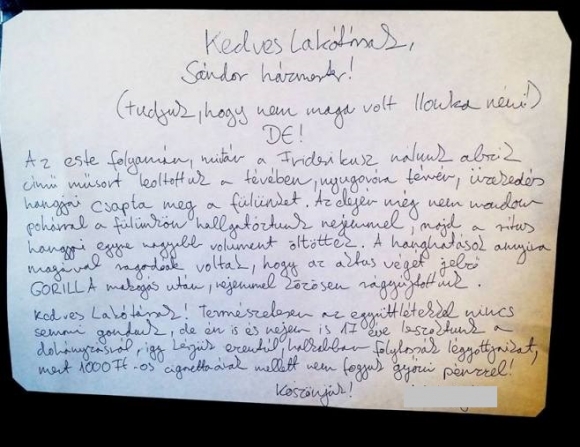 Kedves Lakótársak,
Sándor házmester!
(tudjuk, hogy nem maga volt Ilonka néni!)
DE!
Az este folyamán, miután a Friderikusz nálunk
című műsort leoltottuk a tévében, nyugovóra térvén, üzekedés
hangjai csapta meg a fülünket. Az elején még nem
pohárral a fülünkön hallgatóztunk nejemmel, majd a
hangjai egyre nagyobb volument öltöttek. A hanghatások annyira
magával ragadóak voltak, hogy az aktus végét jelző
GORILLA makogás után, nejemmel közösen rágyújtottunk.
Kedves Lakótársak! Természetesen az együttlétekkel nincs
semmi gondunk, de én is és nejem is 17 éve leszoktunk a
dohányzásról, így kérjük ezentúl halkabban folytassák légyottjaikat,
mert 1000 Ft-os cigarettaárak mellett nem fogjuk győzni pénzzel!
Köszönjük!